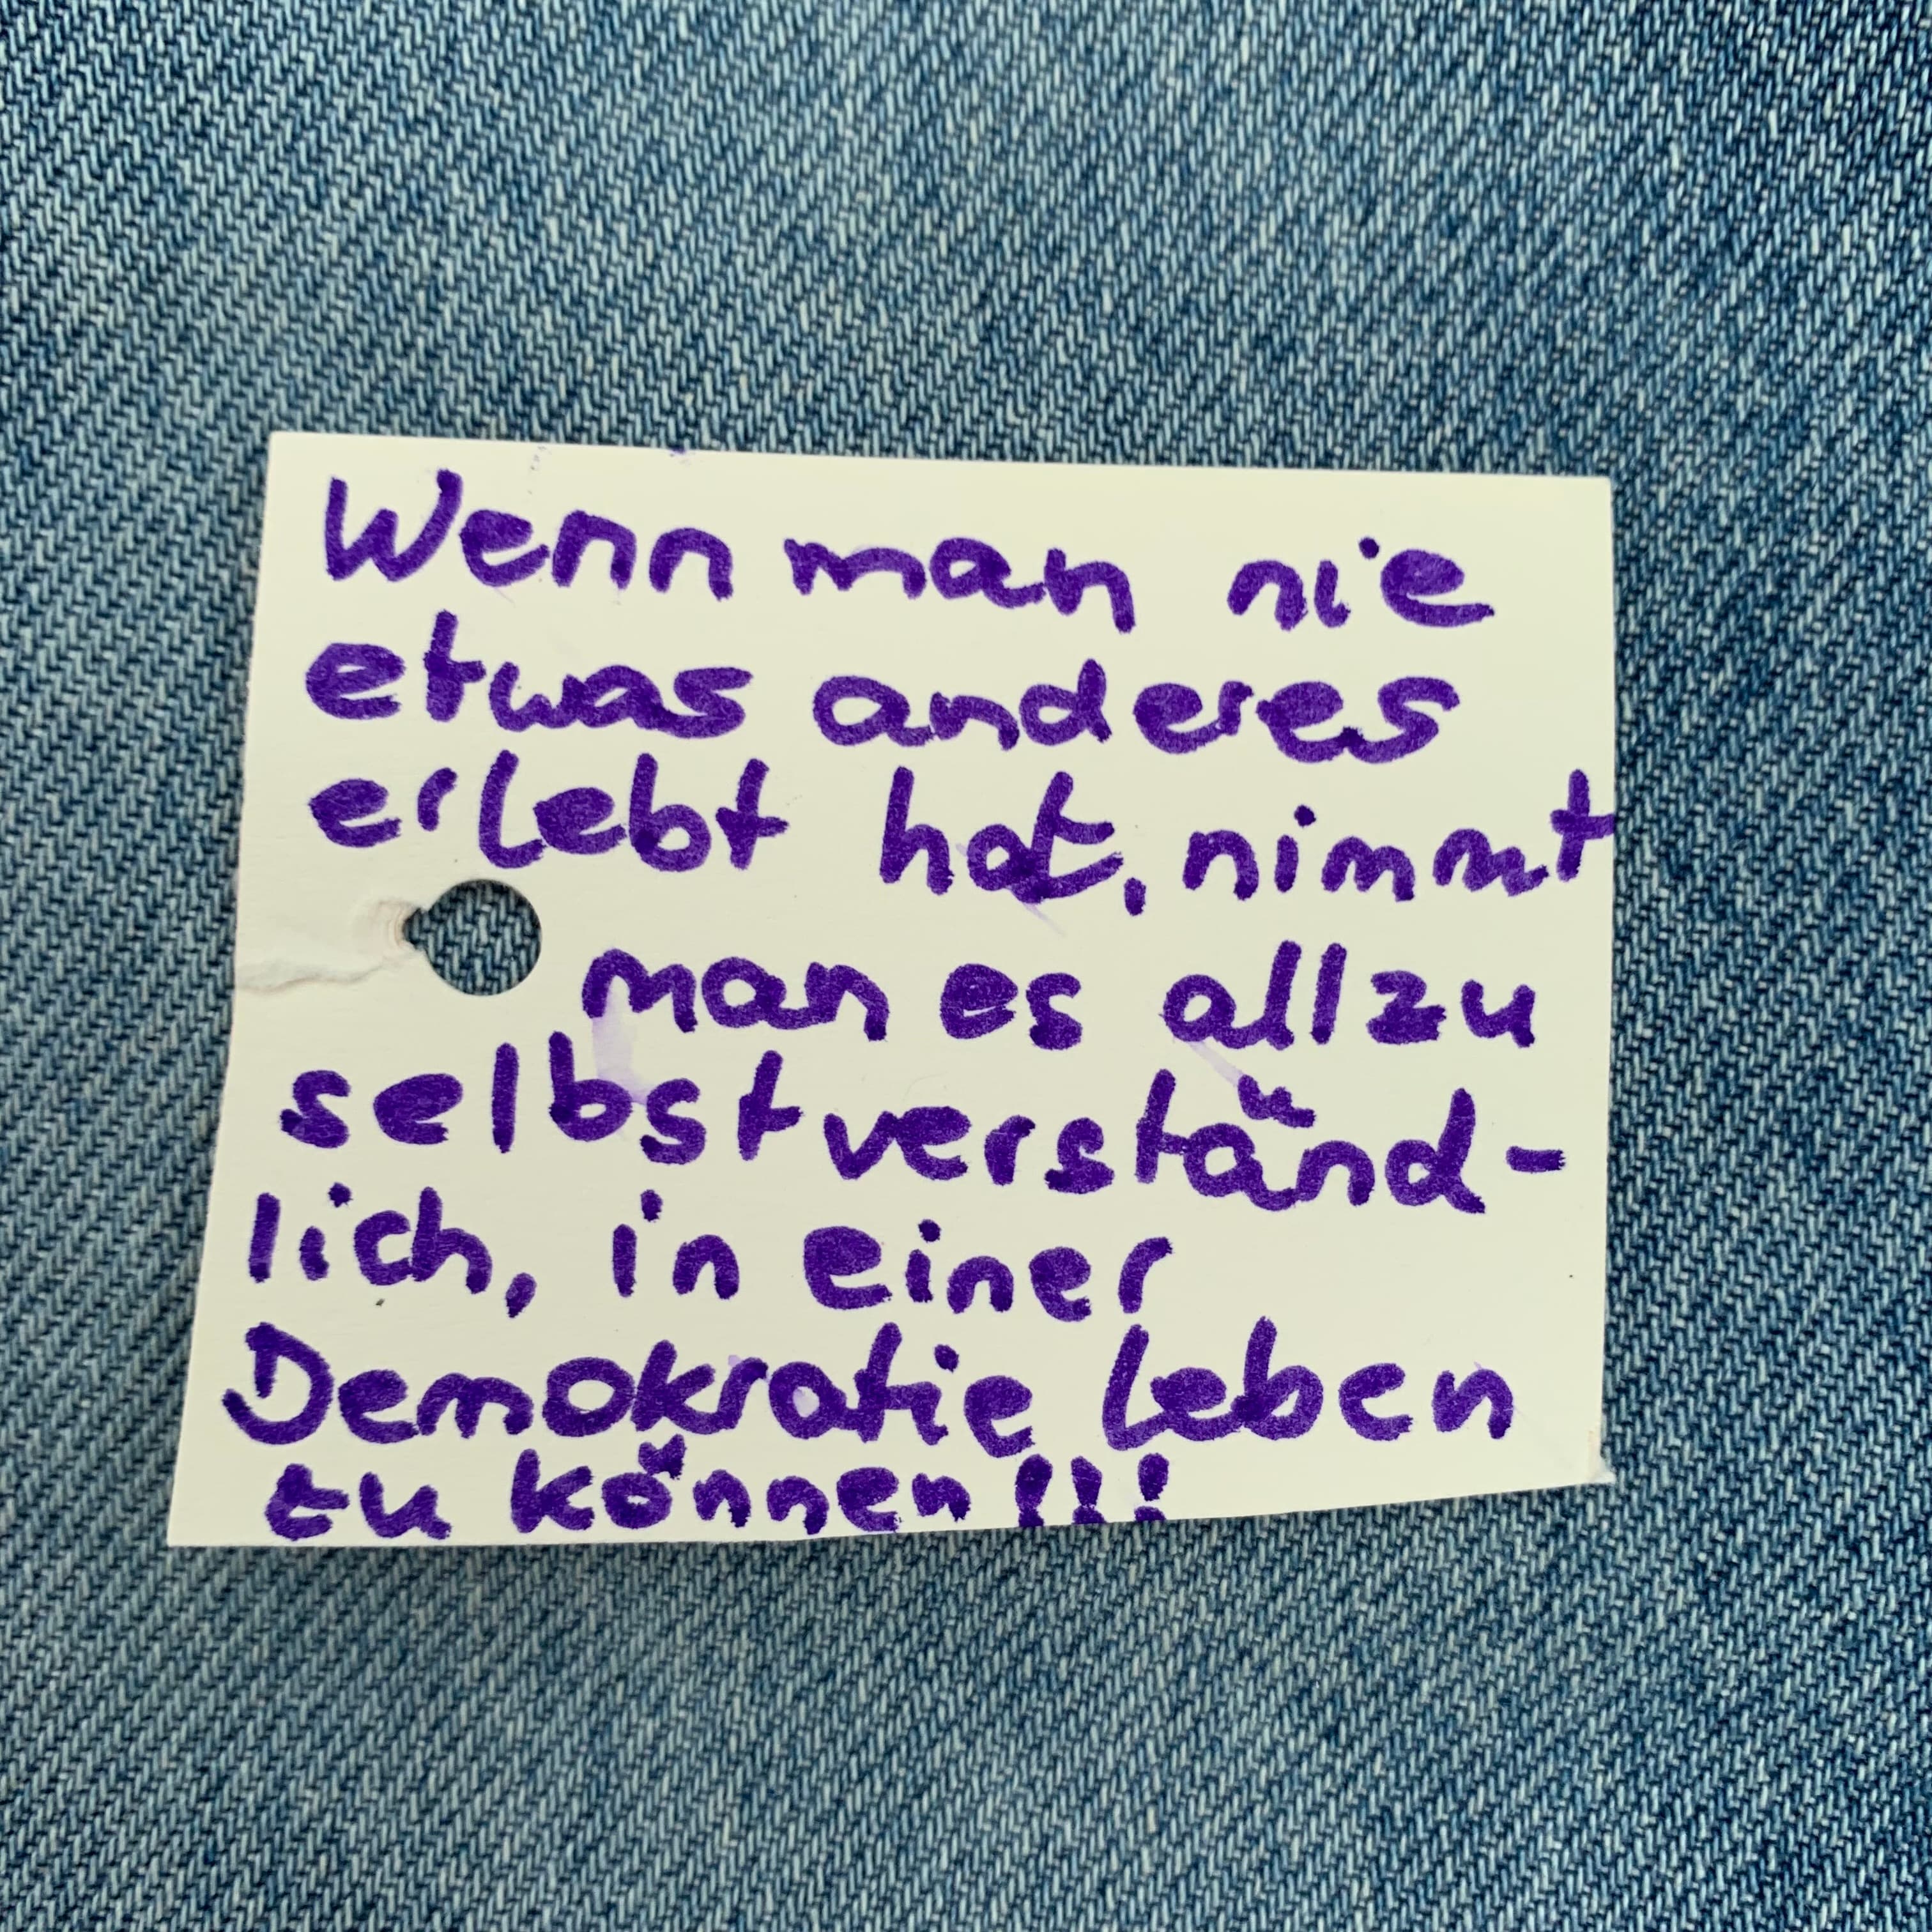 Wenn man nie
etwas anderes
erlebt hat, nimmt
man es allzu
selbstverständ-
lich, in einer
Demokratie leben
zu können!!!